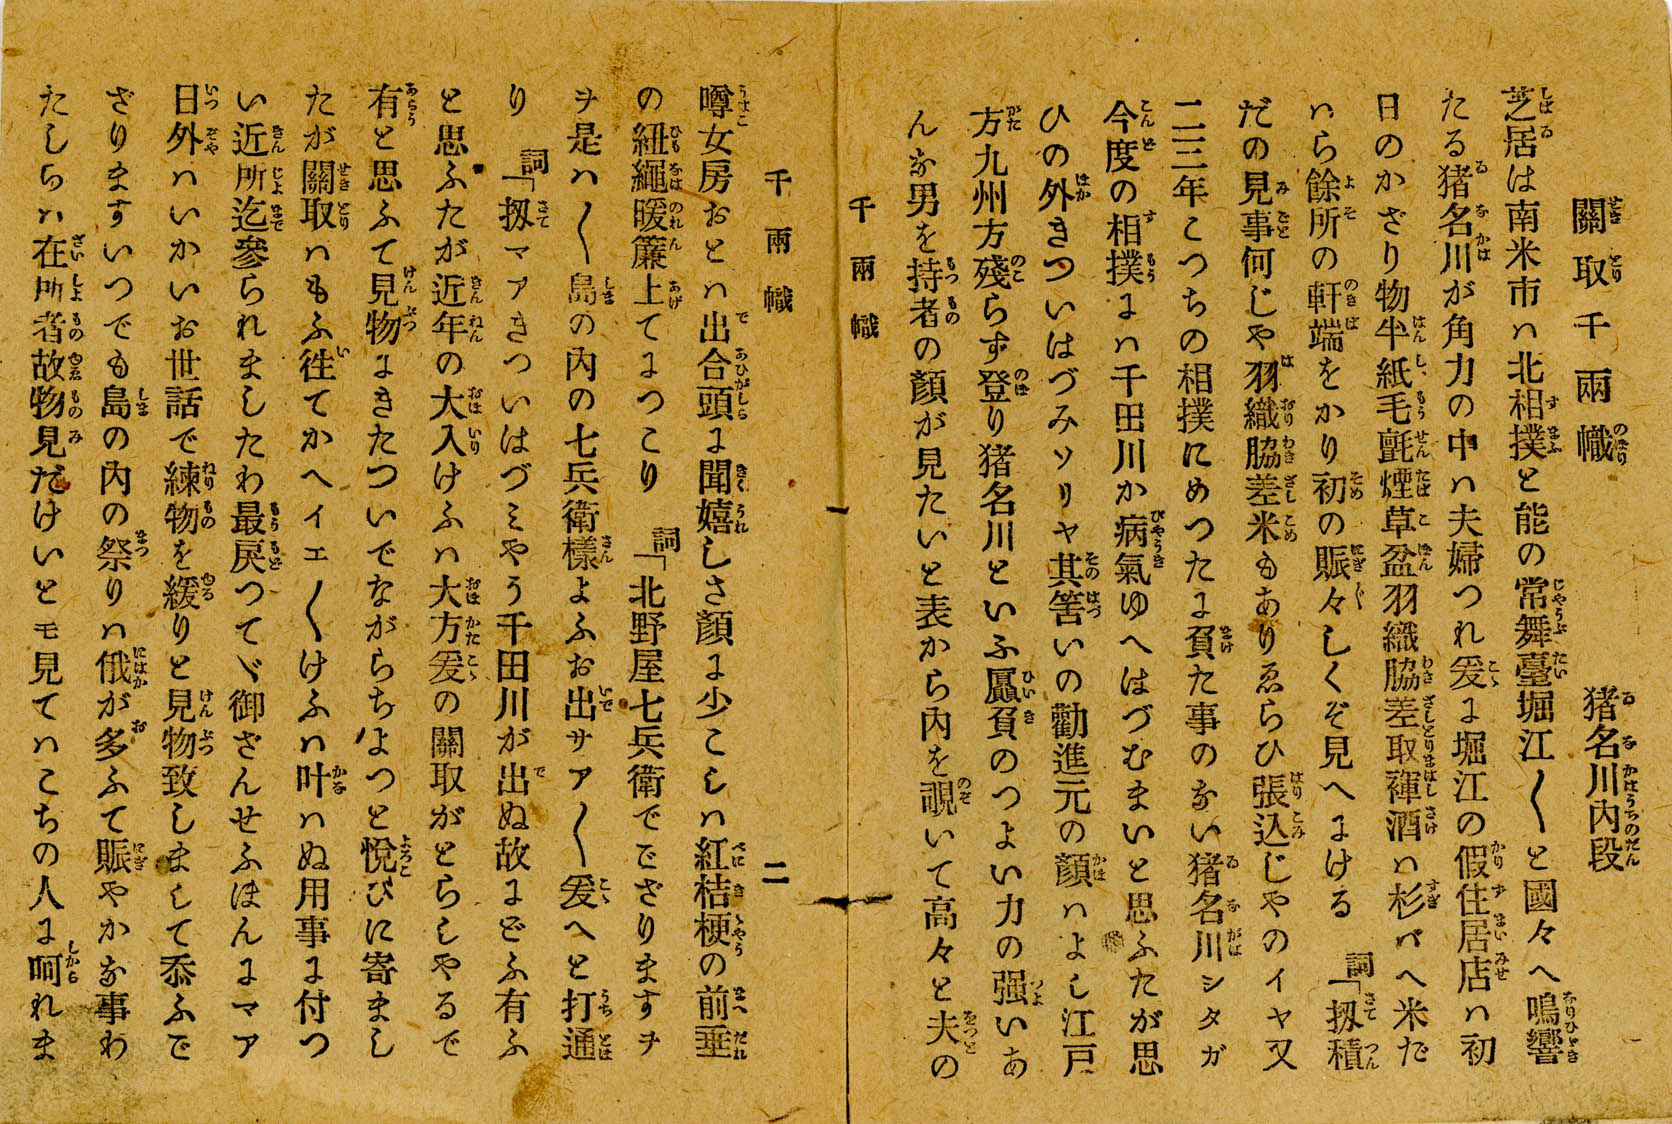 關取千兩幟
猪名川內段
芝居は南米市ハ北相撲と能の常舞臺堀江〱と國々へ鳴響
たる猪名川が角力の中ハ夫婦つれ爰に堀江の假住居店ハ初
日のかざり物半紙毛氈煙草盆羽織脇差取褌酒ハ杉バへ米だ
ハら餘所の軒端をかり初の賑々しくぞ見へにける 詞「扨積
だの見事何じや羽織脇差米もありゑらひ張込じやのイヤ又
二三年こつちの相撲にめつたに負た事のない猪名川シタガ
今度の相撲にハ千田川か病氣ゆへはづむまいと思ふたが思
ひの外きついはづみソリヤ其筈いの勸進元の顏ハよし江戸
方九州方殘らず登り猪名川といふ贔負のつよい力の强いあ
んな男を持者の顏が見たいと表から內を覗いて高々と夫の
千兩幟
千兩幟 二
噂女房おとハ出合頭に聞嬉しさ顏に少こしハ紅桔梗の前垂
の紐繩暖簾上てにつこり 詞「北野屋七兵衛でござりますヲ
ヲ是ハ〱島の內の七兵衛樣よふお出サア〱爰へと打通
り 詞「扨マアきついはづミやう千田川が出ぬ故にどふ有ふ
と思ふたが近年の大入けふハ大方爰の關取がとらしやるで
有と思ふて見物にきたついでながらちよつと悅びに寄まし
たが關取ハもふ徃てかヘイエ〱けふハ叶ハぬ用事に付つ
い近所迄參られましたわ最戾つてゞ御ざんせふほんにマア
日外ハいかいお世話で練物を緩りと見物致しまして忝ふご
ざりますいつでも島の內の祭りハ俄が多ふて賑やかな事わ
たしらハ在所者故物見だけいとモ見てハこちの人に呵れま